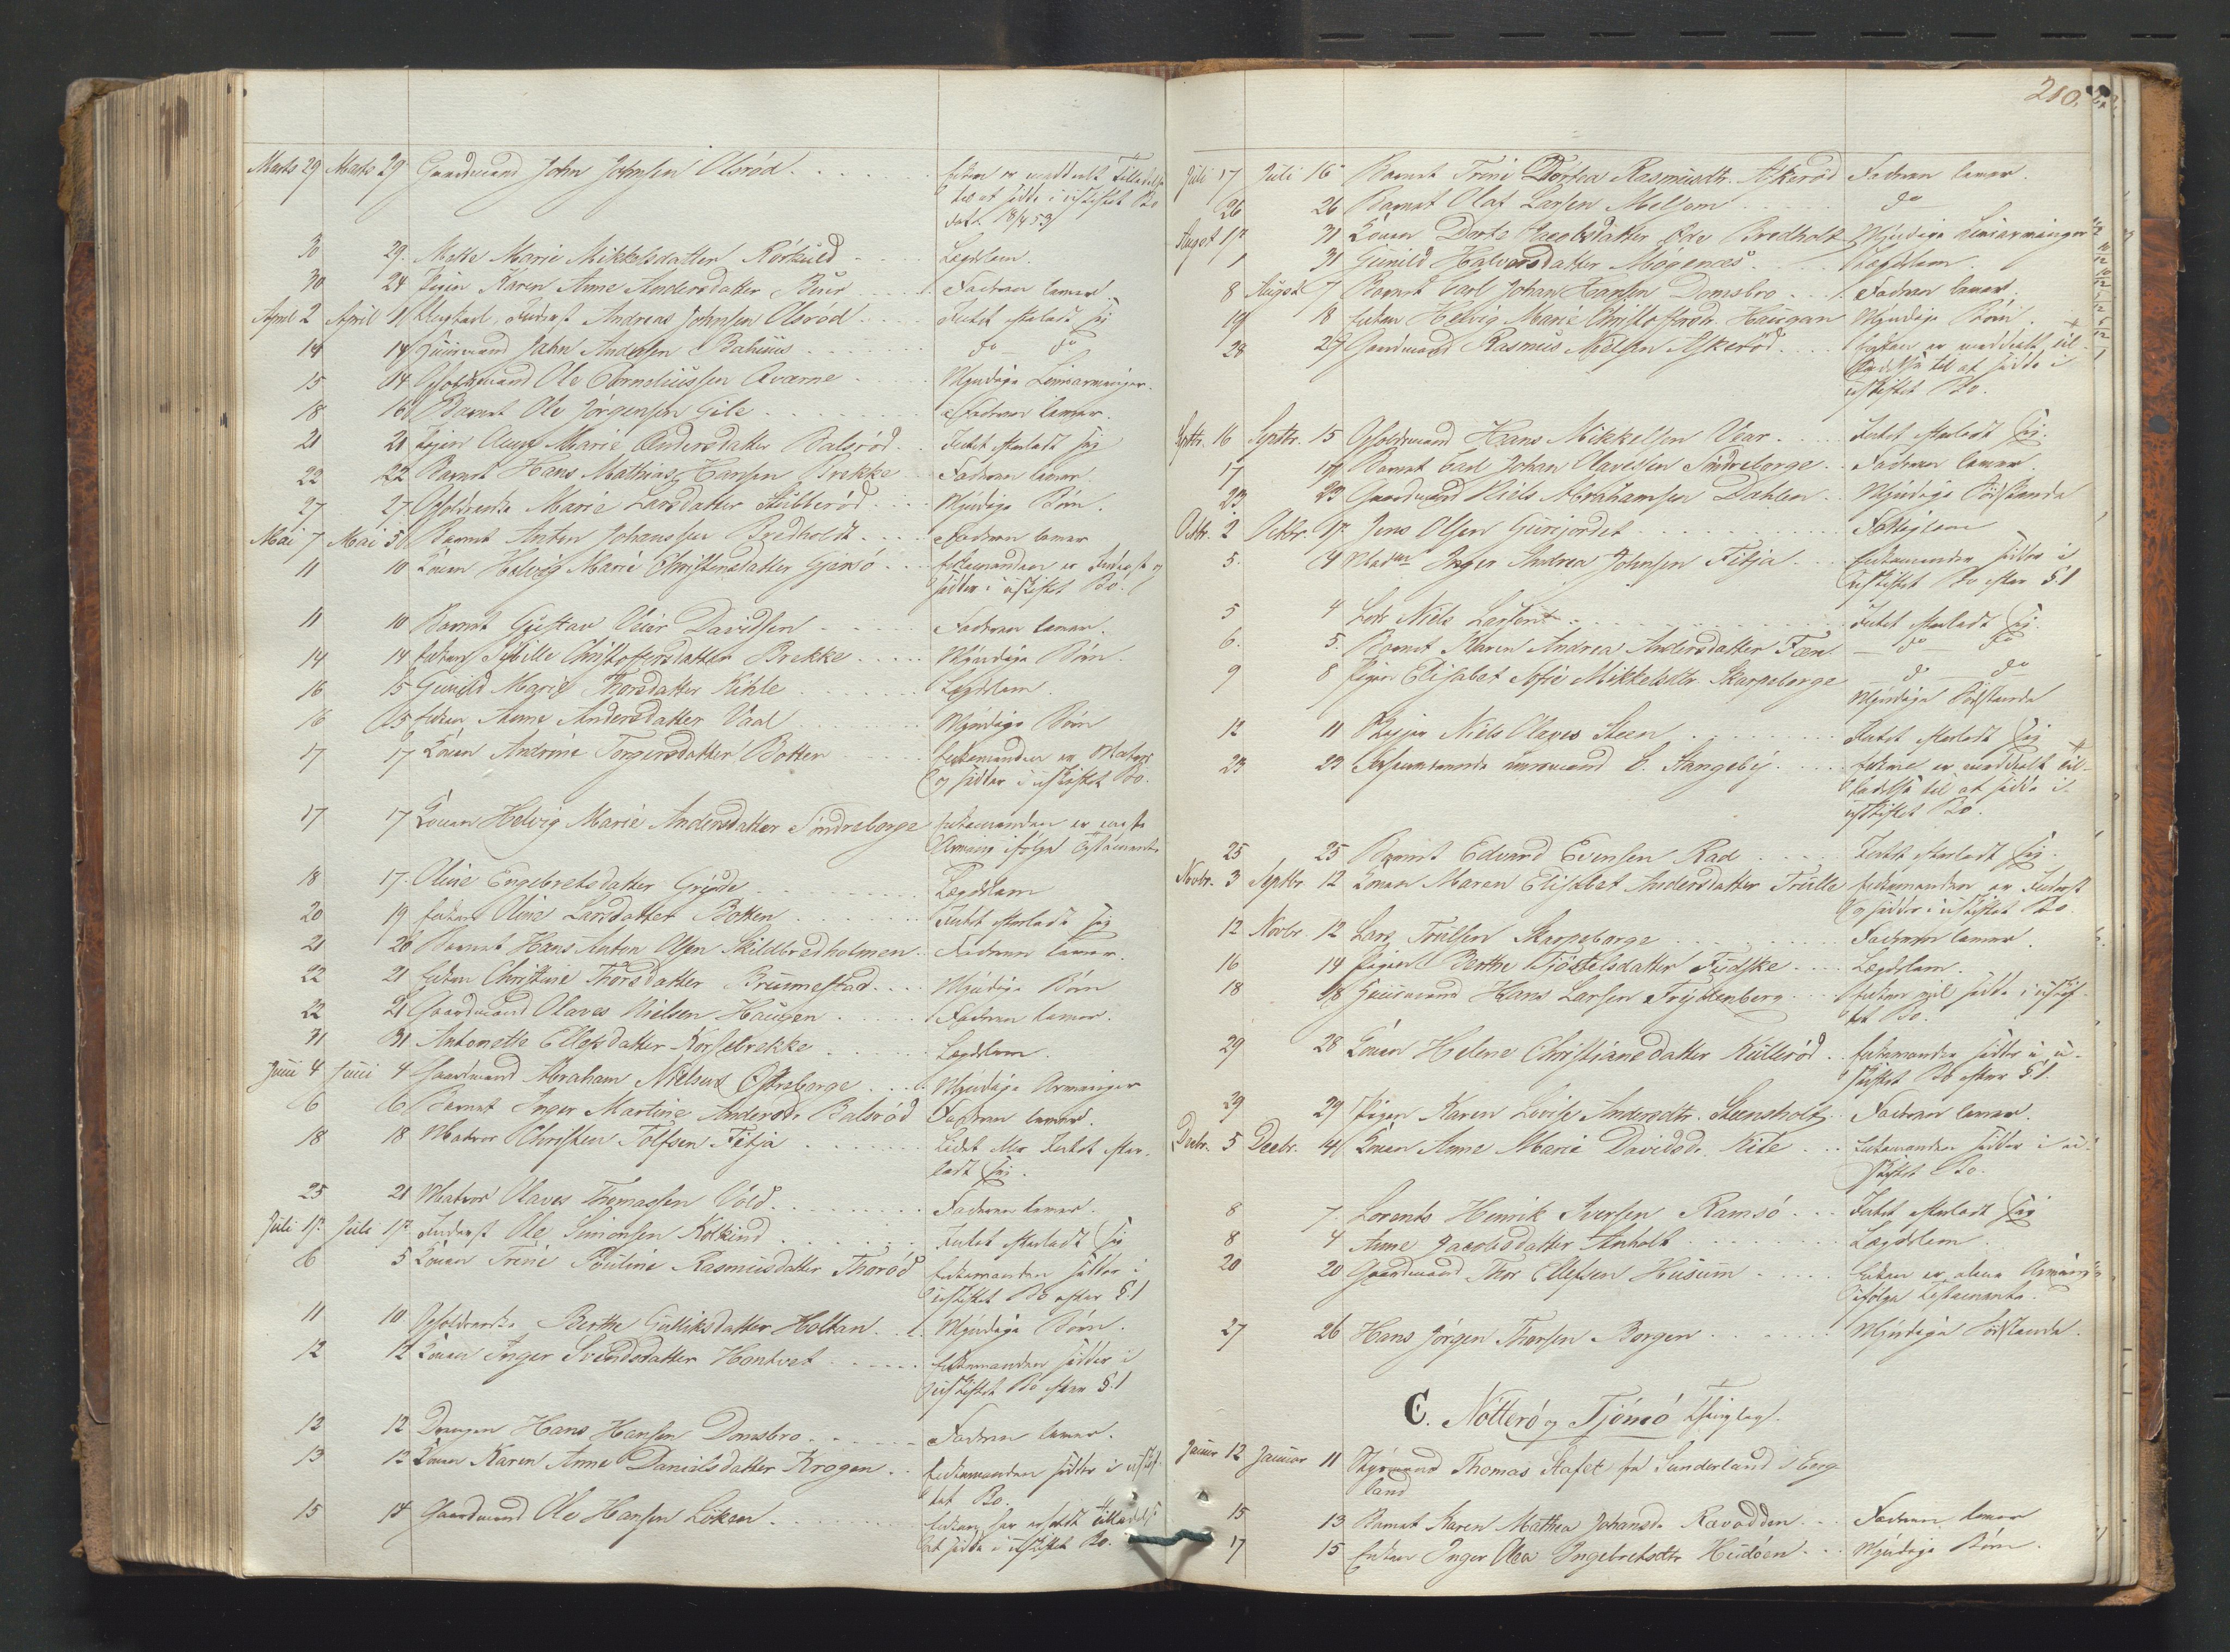 Marts 29 Marts 29 Gaardmand John Johnsen Olsröd Enken er meddeelt Tilladelse
til at sidde i uskiftet Bo
dat. 18/4 53
30 29 Mette Marie Mikkelsdatter Lægdslem.
30 24 Pigen Karen Anne Andersdatter Faderen lever.
April 2 April 1 Inderst Andreas Johnsen Olsröd Intet efterladt sig
14 14 Huusmand John Andersen Bahuus do do
15 14 Ole Corneliussen Qværne Myndige Livsarvinger.
18 16 Barnet Ole Jörgensen Gile Faderen lever.
21 21 Pigen Anne Marie Andersdatter Balsröd Intet efterladt sig
22 22 Barnet Hans Mathias Hansen Brekke Faderen lever.
27 27 Marie Larsdatter Stubberöd Myndige Börn.
Mai 7 Mai 5 Barnet Anton Johanssen Bredholdt Faderen lever
11 10 Konen Helvig Marie Christensdatter Enkemanden er Inderst og
sidder i uskiftet Bo.
11 10 Barnet Gustav Davidsen Faderen lever.
14 14 Enken Sibille Christoffersdatter Brekke Myndige Börn.
16 15 Gunild Marie Thorsdatter Kihle Lægdslem.
16 15 Enken Anne Andersdatter Vaal Myndige Börn
17 17 Konen Andrine Torgersdatter Botten Enkemanden er Matros
og sidder i uskiftet Bo.
17 17 Konen Helvig Marie Andersdatter Söndreborge Enkemanden er eneste
Arving ifölge Testamente
18 17 Oline Engebretsdatter Gryde Lægdslem
20 19 Enken Oline Larsdatter Botten Intet efterladt sig
21 20 Barnet Hans Anton Olsen Skildbredholmen Faderen lever.
22 21 Enken Christine Thorsdatter Brunnestad Myndige Börn
22 21 Gaardmand Olaves Nielsen Haugen Faderen lever.
31 31 Antonette Ellefsdatter Korsebrekke Lægdslem.
Juni 4 Juni 4 Gaardmand Abraham Nielsen Östreborge Myndige Arvinger
6 6 Barnet Inger Martine Andersdr. Balsröd Faderen lever.
18 18 Matros Christen Tolfsen Fitja Lidet eller Intet efter-
ladt sig.
25 21 Matros Olaves Thomassen Vold Faderen lever.
Juli 1ste Juli 1ste Inderst Ole Simonsen Intet efterladt sig
6 5 Konen Trine Pouline Rasmusdatter Thoröd Enkemanden sidder i
uskiftet Bo efter § 1
11 10 Berthe Gulliksdatter Holtan Myndige Börn.
12 12 Konen Inger Svendsdatter Hontvet Enkemanden sidder i
uskiftet Bo efter § 1
12 12 Drengen Hans Hansen Domsbro Faderen lever.
13 12 Konen Karen Anne Danielsdatter Krogen Enkemanden sidder i uskif-
tet Bo.
15 14 Gaardmand Ole Hansen Löken Enken har erholdt Tilladelse
at sidde i uskiftet Bo.
210.
Juli 17 Juli 16 Barnet Trine Dortea Rasmusdtr. Askeröd Faderen lever.
26 26 Barnet Olaf Larsen Melsom do
August 1ste 31 Konen Dorte Jacobsdatter Bredholt Myndige Livsarvinger
1 31 Gunild Halvorsdatter Mogenæs Lægdslem.
8 August 7 Barnet Carl Johan Hansen Domsbro Faderen lever.
19 18 Enken Helvig Marie Christoffersdr. Haugan Myndige Börn.
28 27 Gaardmand Rasmus Nielsen Askeröd Enken er meddeelt Til-
ladelse til at sidde i
uskiftet Bo.
Septbr. 16 Septbr. 15 Hans Mikkelsen Vear Intet efterladt sig.
17 17 Barnet Carl Johan Olavessen Söndreborge Faderen lever.
23 23 Gaardmand Niels Abrahamsen Dahlen Myndige Södskende
Octbr. 2 Octbr. 1ste Jens Olsen Gurijordet Fattiglem
5. 4 Inger Andrea Johnsen Fitja Enkemanden sidder i
uskiftet Bo efter § 1
5 4 Niels Larsen Intet efterladt sig.
6. 5. Barnet Karen Andrea Andersdatter Fæn do do
9 8 Pigen Elisabet Sofie Mikkelsdtr. Skarpeborge do do
Myndige Södskende
12 11 Niels Olaves Steen Intet efterladt sig
23 23 C. Stangeby Enken er meddeelt Til-
ladelse til at sidde i
uskiftet Bo.
25 25 Barnet Edvard Evensen Rad Intet efterladt sig.
Novbr. 3 Septbr. 12 Konen Maren Elisabet Andersdatter Trulle Enkemanden er Inderst
og sidder i uskiftet Bo
12 Novbr. 12 Lars Trulsen Skarpeborge Faderen lever.
16 14 Pigen Berthe Lægdslem.
18 18 Huusmand Hans Larsen Fryktenberg Enken vil sidde i uskif-
tet Bo.
29 28 Konen Helene Christiansdatter Kulleröd Enkemanden sidder i u-
skiftet Bo efter § 1.
29 29 Pigen Karen Lovise Andersdtr. Steensholt Faderen lever.
Decbr. 5 Decbr. 4 Konen Anne Marie Davidsdr. Kile Enkemanden sidder i u-
skiftet Bo.
8 7 Lorents Henrik Iversen Ramsö Intet efterladt sig
8 4 Anne Jacobsdatter Anholt Lægdslem
20 20 Gaardmand Thor Ellefsen Husum Enken er alene Arving
ifölge Testamente.
27 26 Hans Jörgen Thorsen Borgen Myndige Södskende.
C. Nötterö og Tjömö Thinglag.
Januar 12 Januar 11 Styrmand Thomas Stafet fra Sunderland i Eng-
land
15 13 Barnet Karen Mathea Johansdr. Ravodden Faderen lever
17 15 Enken Inger Olea Ingebretsdtr Hudöen Myndige Börn.